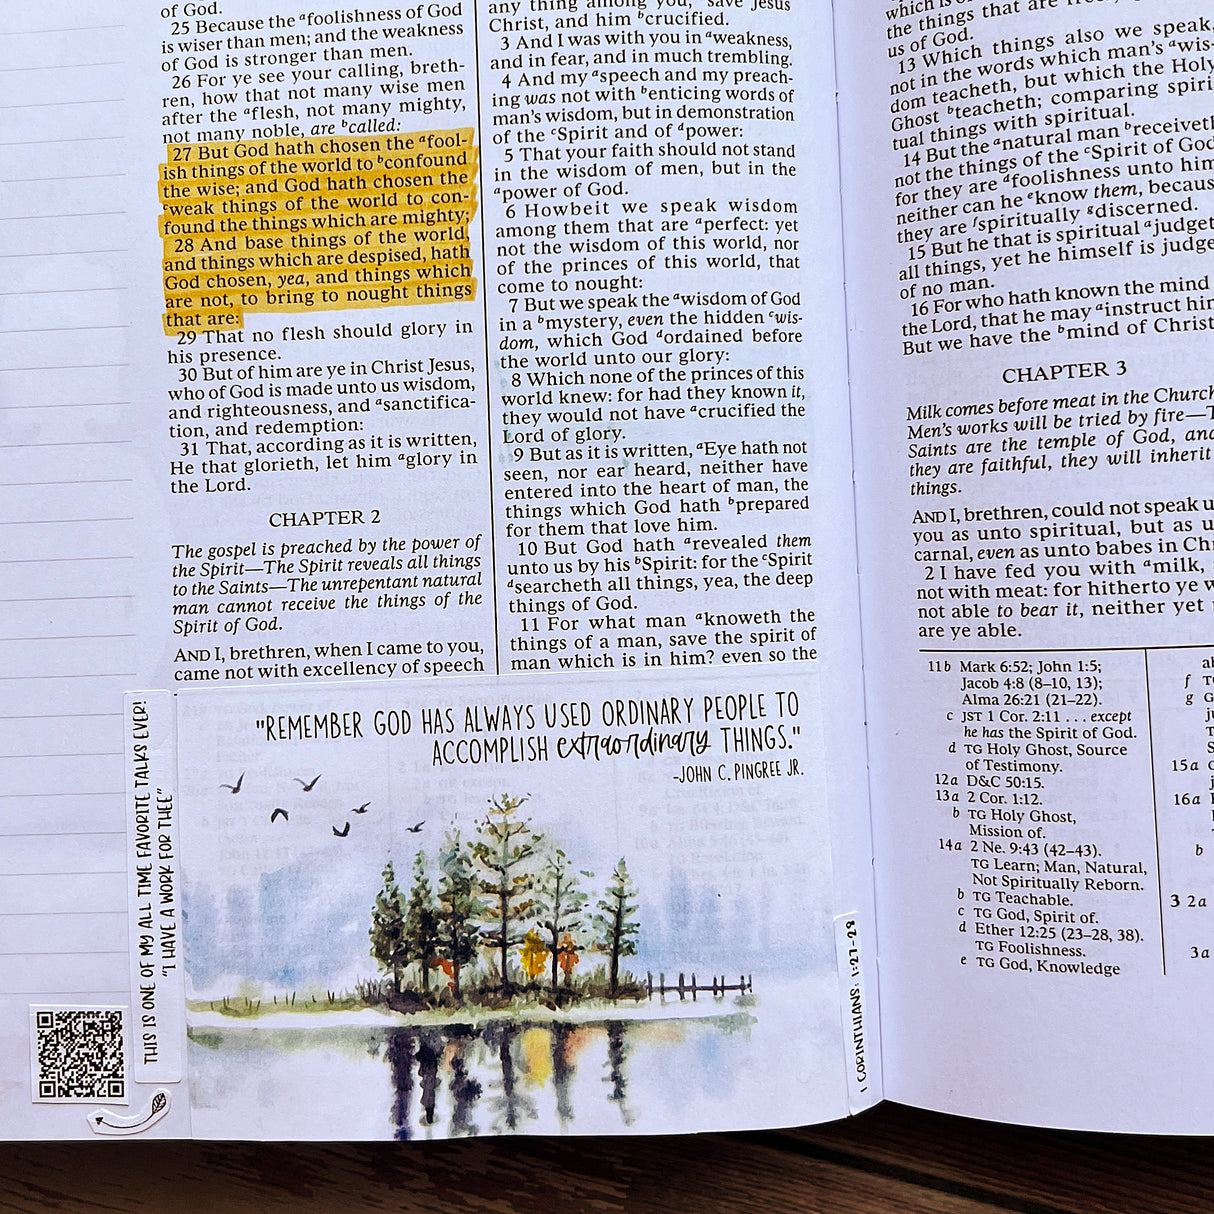 of God.
25 Because the ᵃfoolishness of God
is wiser than men; and the weakness
of God is stronger than men.
26 For ye see your calling, breth-
ren, how that not many wise men
after the ᵃflesh, not many mighty,
not many noble, are ᵇcalled:
27 But God hath chosen the ᵃfool-
ish things of the world to ᵇconfound
the wise; and God hath chosen the
ᶜweak things of the world to con-
found the things which are mighty;
28 And base things of the world,
and things which are despised, hath
God chosen, yea, and things which
are not, to bring to nought things
that are:
29 That no flesh should glory in
his presence.
30 But of him are ye in Christ Jesus,
who of God is made unto us wisdom,
and righteousness, and ᵃsanctifica-
tion, and redemption:
31 That, according as it is written,
He that glorieth, let him ᵃglory in
the Lord.
CHAPTER 2
The gospel is preached by the power of
the Spirit—The Spirit reveals all things
to the Saints—The unrepentant natural
man cannot receive the things of the
Spirit of God.
AND I, brethren, when I came to you,
came not with excellency of speech
any thing among you, save Jesus
Christ, and him ᵇcrucified.
3 And I was with you in ᵃweakness,
and in fear, and in much trembling.
4 And my ᵃspeech and my preach-
ing was not with ᵇenticing words of
man's wisdom, but in demonstration
of the ᶜSpirit and of ᵈpower:
5 That your faith should not stand
in the wisdom of men, but in the
ᵃpower of God.
6 Howbeit we speak wisdom
among them that are ᵃperfect: yet
not the wisdom of this world, nor
of the princes of this world, that
come to nought:
7 But we speak the ᵃwisdom of God
in a ᵇmystery, even the hidden ᶜwis-
dom, which God ᵈordained before
the world unto our glory:
8 Which none of the princes of this
world knew: for had they known it,
they would not have ᵃcrucified the
Lord of glory.
9 But as it is written, ᵃEye hath not
seen, nor ear heard, neither have
entered into the heart of man, the
things which God hath ᵇprepared
for them that love him.
10 But God hath ᵃrevealed them
unto us by his ᵇSpirit: for the ᶜSpirit
ᵈsearcheth all things, yea, the deep
things of God.
11 For what man ᵃknoweth the
things of a man, save the spirit of
man which is in him? even so the
which is
the things that are
us of God.
13 Which things also we speak,
not in the words which man's ᵃwis-
dom teacheth, but which the Holy
Ghost ᵇteacheth; comparing spiri
tual things with spiritual.
14 But the ᵃnatural man ᵇreceiveth
not the things of the ᶜSpirit of God
for they are ᵈfoolishness unto him
neither can he ᵉknow them, becaus
they are ᶠspiritually ᵍdiscerned.
15 But he that is spiritual ᵃjudget
all things, yet he himself is judge
of no man.
16 For who hath known the mind
the Lord, that he may ᵃinstruct him
But we have the ᵇmind of Christ
CHAPTER 3
Milk comes before meat in the Church
Men's works will be tried by fire—T
Saints are the temple of God, and
they are faithful, they will inherit
things.
AND I, brethren, could not speak u
you as unto spiritual, but as u
carnal, even as unto babes in Chr
2 I have fed you with ᵃmilk,
not with meat: for hitherto ye w
not able to bear it, neither yet
are ye able.
11b Mark 6:52; John 1:5;
Jacob 4:8 (8–10, 13);
Alma 26:21 (21–22).
c JST 1 Cor. 2:11 . . . except
he has the Spirit of God.
d TG Holy Ghost, Source
of Testimony.
12a D&C 50:15.
13a 2 Cor. 1:12.
b TG Holy Ghost,
Mission of.
14a 2 Ne. 9:43 (42–43).
TG Learn; Man, Natural,
Not Spiritually Reborn.
b TG Teachable.
c TG God, Spirit of.
d Ether 12:25 (23–28, 38).
TG Foolishness.
e TG God, Knowledge
f
g G
15a
16a
b
3 2a
3a
"REMEMBER GOD HAS ALWAYS USED ORDINARY PEOPLE TO
ACCOMPLISH extraordinary THINGS."
-JOHN C. PINGREE JR.
THIS IS ONE OF MY ALL TIME FAVORITE TALKS EVER!
"I HAVE A WORK FOR THEE"
1 CORINTHIANS 1:27-28